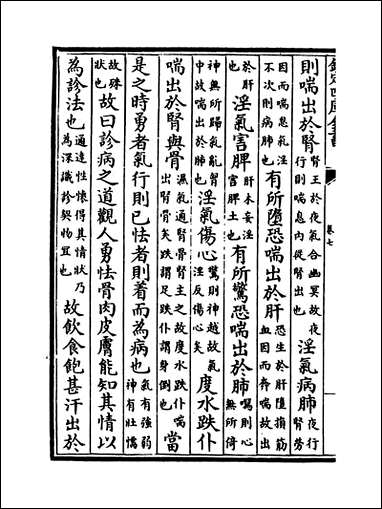 欽定四庫全書
卷七
則喘出於腎腎王於夜氣合幽冥故夜行則喘息內從腎出也淫氣病肺夜行腎勞
因而喘息氣淫不次則病肺也有所墮恐喘出於肝恐生於肝墮損筋血因而奔喘故出
於肝也淫氣害脾肝木妄淫害脾土也有所驚恐喘出於肺驚則心無所倚
神無所歸氣亂胷中故喘出於肺也淫氣傷心驚則神越故氣淫反傷心矣度水跌仆
喘出於腎與骨濕氣通腎骨腎主之故度水跌仆喘出腎骨矣跌謂足跌仆謂身倒也當
是之時勇者氣行則已怯者則着而為病也氣有強弱神有壯懦
故殊狀也故曰診病之道觀人勇怯骨肉皮膚能知其情以
為診法也通達性懷得其情狀乃為深識診契物宜也故飲食飽甚汗出於